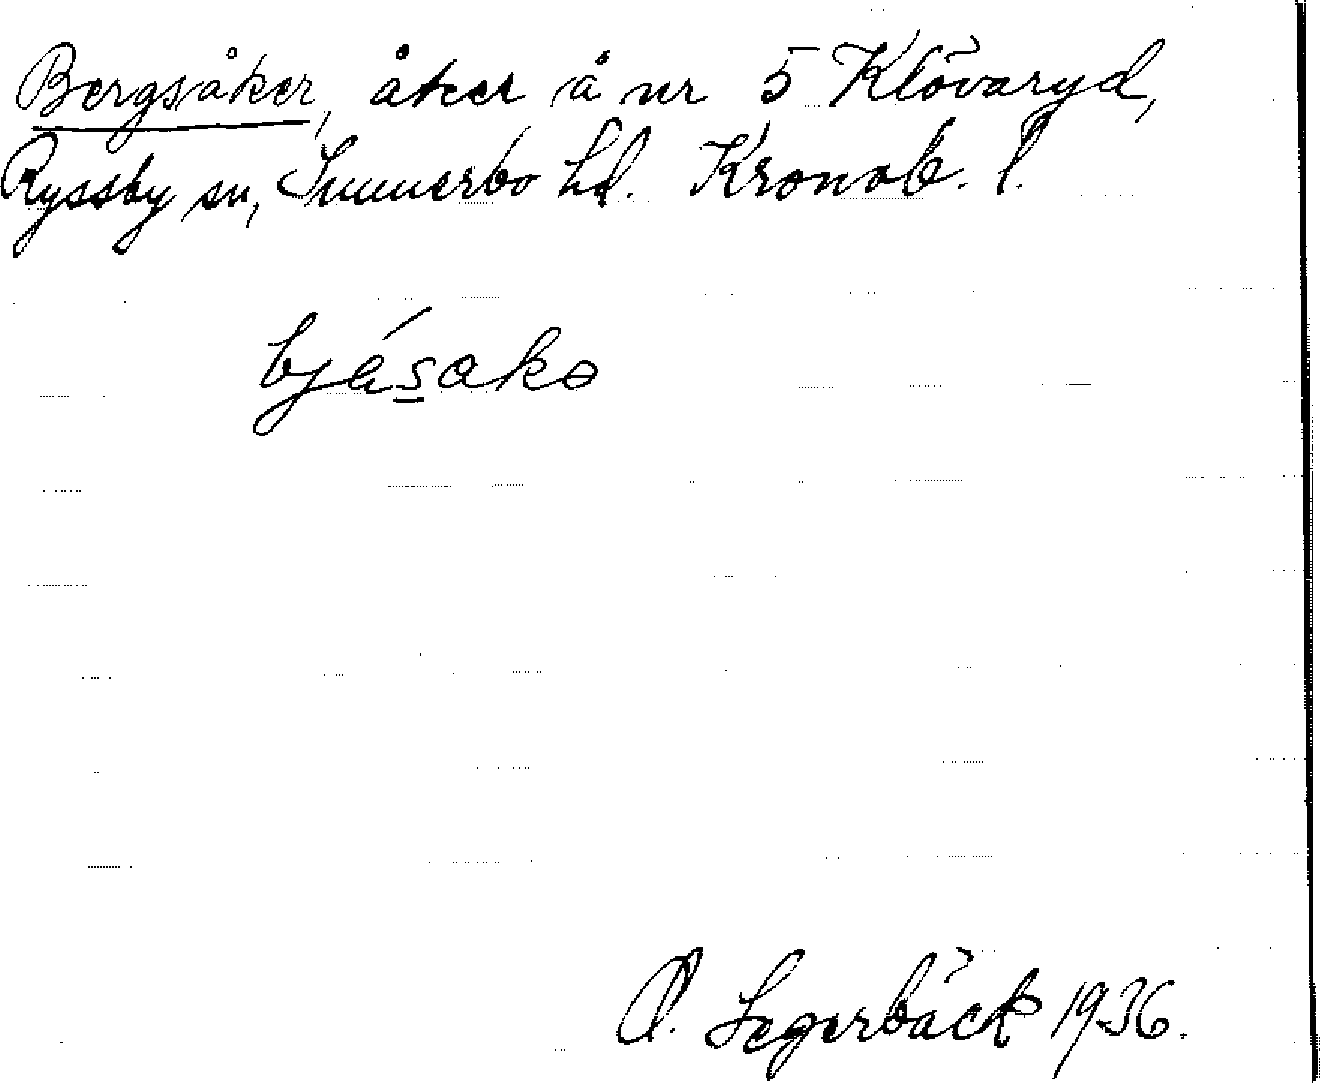 Bergsåker, åker å nr 5 Klövaryd,
Ryssby sn, Sunnerbo hd. Kronob. l.
bjäsakə
Segerbäck 1936.